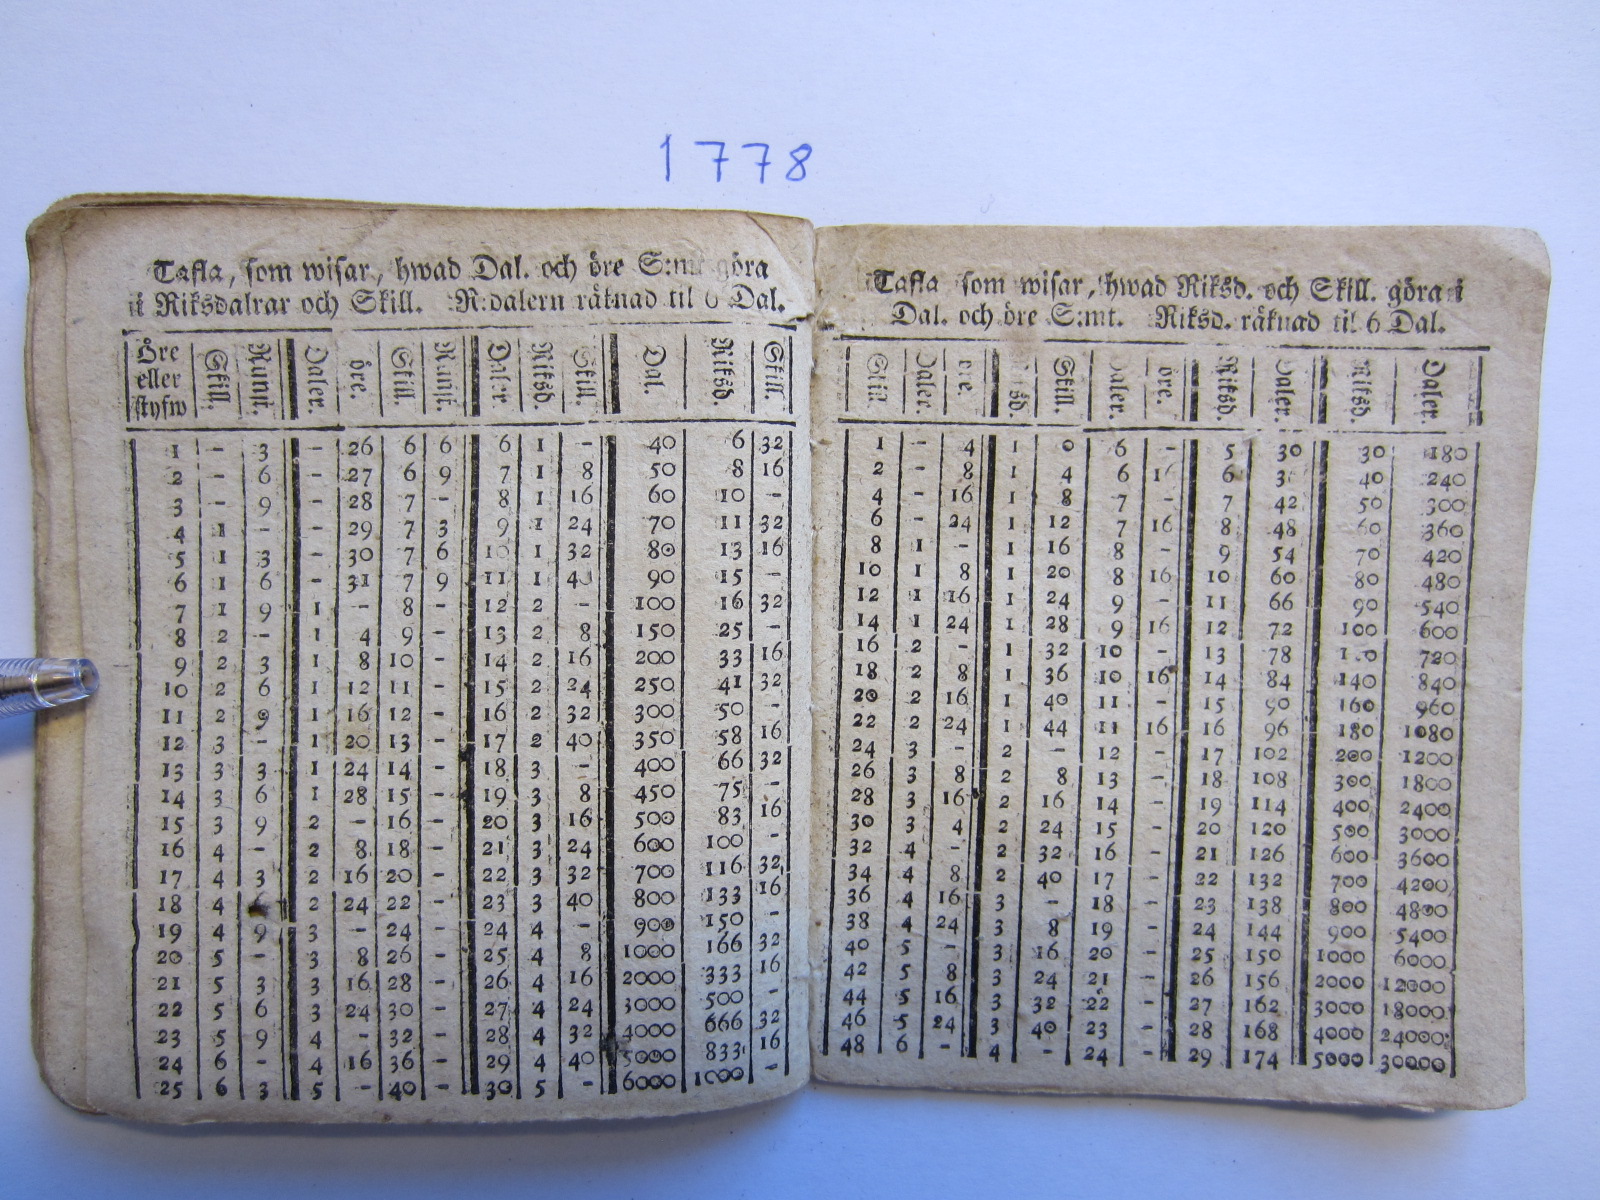 1778
Tafla, som wisar, hwad Dal. och öre göra
i Riksdalrar och Skill. R:dalern räknad til 6 Dal.
Öre eller styfw Skill. Runst. Daler. öre. Skill. Runst. Daler. Riksd. Skill. Dal. Riksd. Skill.
1 – 3 – 26 6 6 6 1 – 40 6 32
2 – 6 – 27 6 9 7 1 8 50 8 16
3 – 9 – 28 7 – 8 1 16 60 10 –
4 1 – – 29 7 3 9 1 24 70 11 32
5 1 3 – 30 7 6 10 1 32 80 13 16
6 1 6 – 31 7 9 11 1 40 90 15 –
7 1 9 1 – 8 – 12 2 – 100 16 32
8 2 – 1 4 9 – 13 2 8 150 25 –
9 2 3 1 8 10 – 14 2 16 200 33 16
10 2 6 1 12 11 – 15 2 24 250 41 32
11 2 9 1 16 12 – 16 2 32 300 50 –
12 3 – 1 20 13 – 17 2 40 350 58 16
13 3 3 1 24 14 – 18 3 – 400 66 32
14 3 6 1 28 15 – 19 3 8 450 75 –
15 3 9 2 – 16 – 20 3 16 500 83 16
16 4 – 2 8 18 – 21 3 24 600 100 –
17 4 3 2 16 20 – 22 3 32 700 116 32
18 4 6 2 24 22 – 23 3 40 800 133 16
19 4 9 3 – 24 – 24 4 – 900 150 –
20 5 – 3 8 26 – 25 4 8 1000 166 32
21 5 3 3 16 28 – 26 4 16 2000 333 16
22 5 6 3 24 30 – 27 4 24 3000 500 –
23 5 9 4 – 32 – 28 4 32 4000 666 32
24 6 – 4 16 36 – 29 4 40 5000 833 16
25 6 3 5 – 40 – 30 5 – 6000 1000 –
Tafla som wisar, hwad Riksd. och Skill. göra i
Dal. och öre S:mt. Riksd. räknad til 6 Dal.
Skill. Daler. Skill. Daler. öre. Riksd. Daler. Riksd. Daler.
1 – 4 1 0 6 – 5 30 30 180
2 – 8 1 4 6 16 6 40 240
4 – 16 1 8 7 – 7 42 50 300
6 – 24 1 12 7 16 8 48 60 360
8 1 – 1 16 8 – 9 54 70 420
10 1 8 1 20 8 16 10 60 80 480
12 1 16 1 24 9 – 11 66 90 540
14 1 24 1 28 9 16 12 72 100 600
16 2 – 1 32 10 – 13 78 720
18 2 8 1 36 10 16 14 84 140 840
20 2 16 1 40 11 – 15 90 160 960
22 2 24 1 44 11 16 16 96 180 1080
24 3 – 2 – 12 – 17 102 200 1200
26 3 8 2 8 13 – 18 108 300 1800
28 3 16 2 16 14 – 19 114 400 2400
30 3 4 2 24 15 – 20 120 500 3000
32 4 – 2 32 16 – 21 126 600 3600
34 4 8 2 40 17 – 22 132 700 4200
36 4 16 3 – 18 – 23 138 800 4800
38 4 24 3 8 19 – 24 144 900 5400
40 5 – 3 16 20 – 25 150 1000 6000
42 5 8 3 24 21 – 26 156 2000 12000
44 5 16 3 32 22 – 27 162 3000 18000
46 5 24 3 40 23 – 28 168 4000 24000
48 6 – 4 – 24 – 29 174 5000 30000